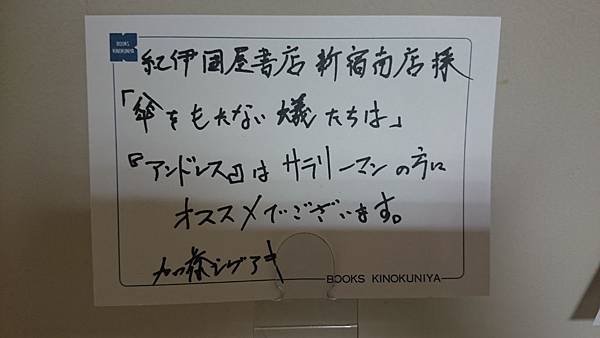 BOOKS
KINOKUNIYA
紀伊國屋書店 新宿南店 様
「傘をもたない蟻たちは」
『アンドレス』は サラリーマン の方に
オススメでございます。
加藤シゲアキ
BOOKS KINOKUNIYA